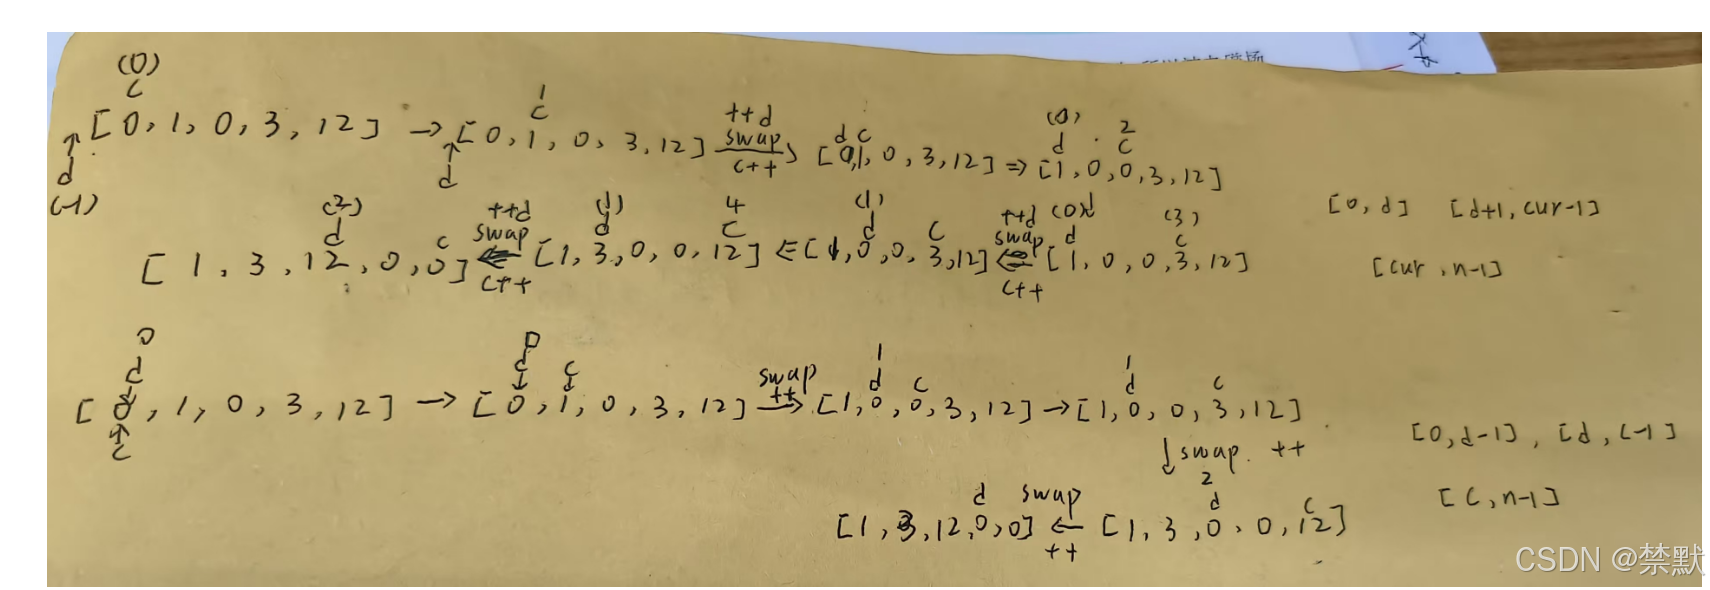 (0)
c
[0, 1, 0, 3, 12] → [0, 1, 0, 3, 12] ++d swap c++ → [0, 1, 0, 3, 12] ⇒ [1, 0, 0, 3, 12]
1
c
d c
(0)
d
2
c
d
(-1)
d
[0, d] [d+1, cur-1]
[cur, n-1]
(2)
d
c
++d
swap
c++
(1)
d
4
c
(1)
d
c
++d
swap
c++
(0)
d
(3)
c
[1, 3, 12, 0, 0] ⇐ [1, 3, 0, 0, 12] ⇐ [1, 0, 0, 3, 12] ⇐ [1, 0, 0, 3, 12]
0
d
0
d
c
swap
++
1
d
c
1
d
c
[0, 1, 0, 3, 12] → [0, 1, 0, 3, 12] → [1, 0, 0, 3, 12] → [1, 0, 0, 3, 12]
c
[0, d-1], [d, c-1]
↓ swap. ++
[c, n-1]
d
swap
++
2
d
c
[1, 3, 12, 0, 0] ← [1, 3, 0, 0, 12]
CSDN @禁默